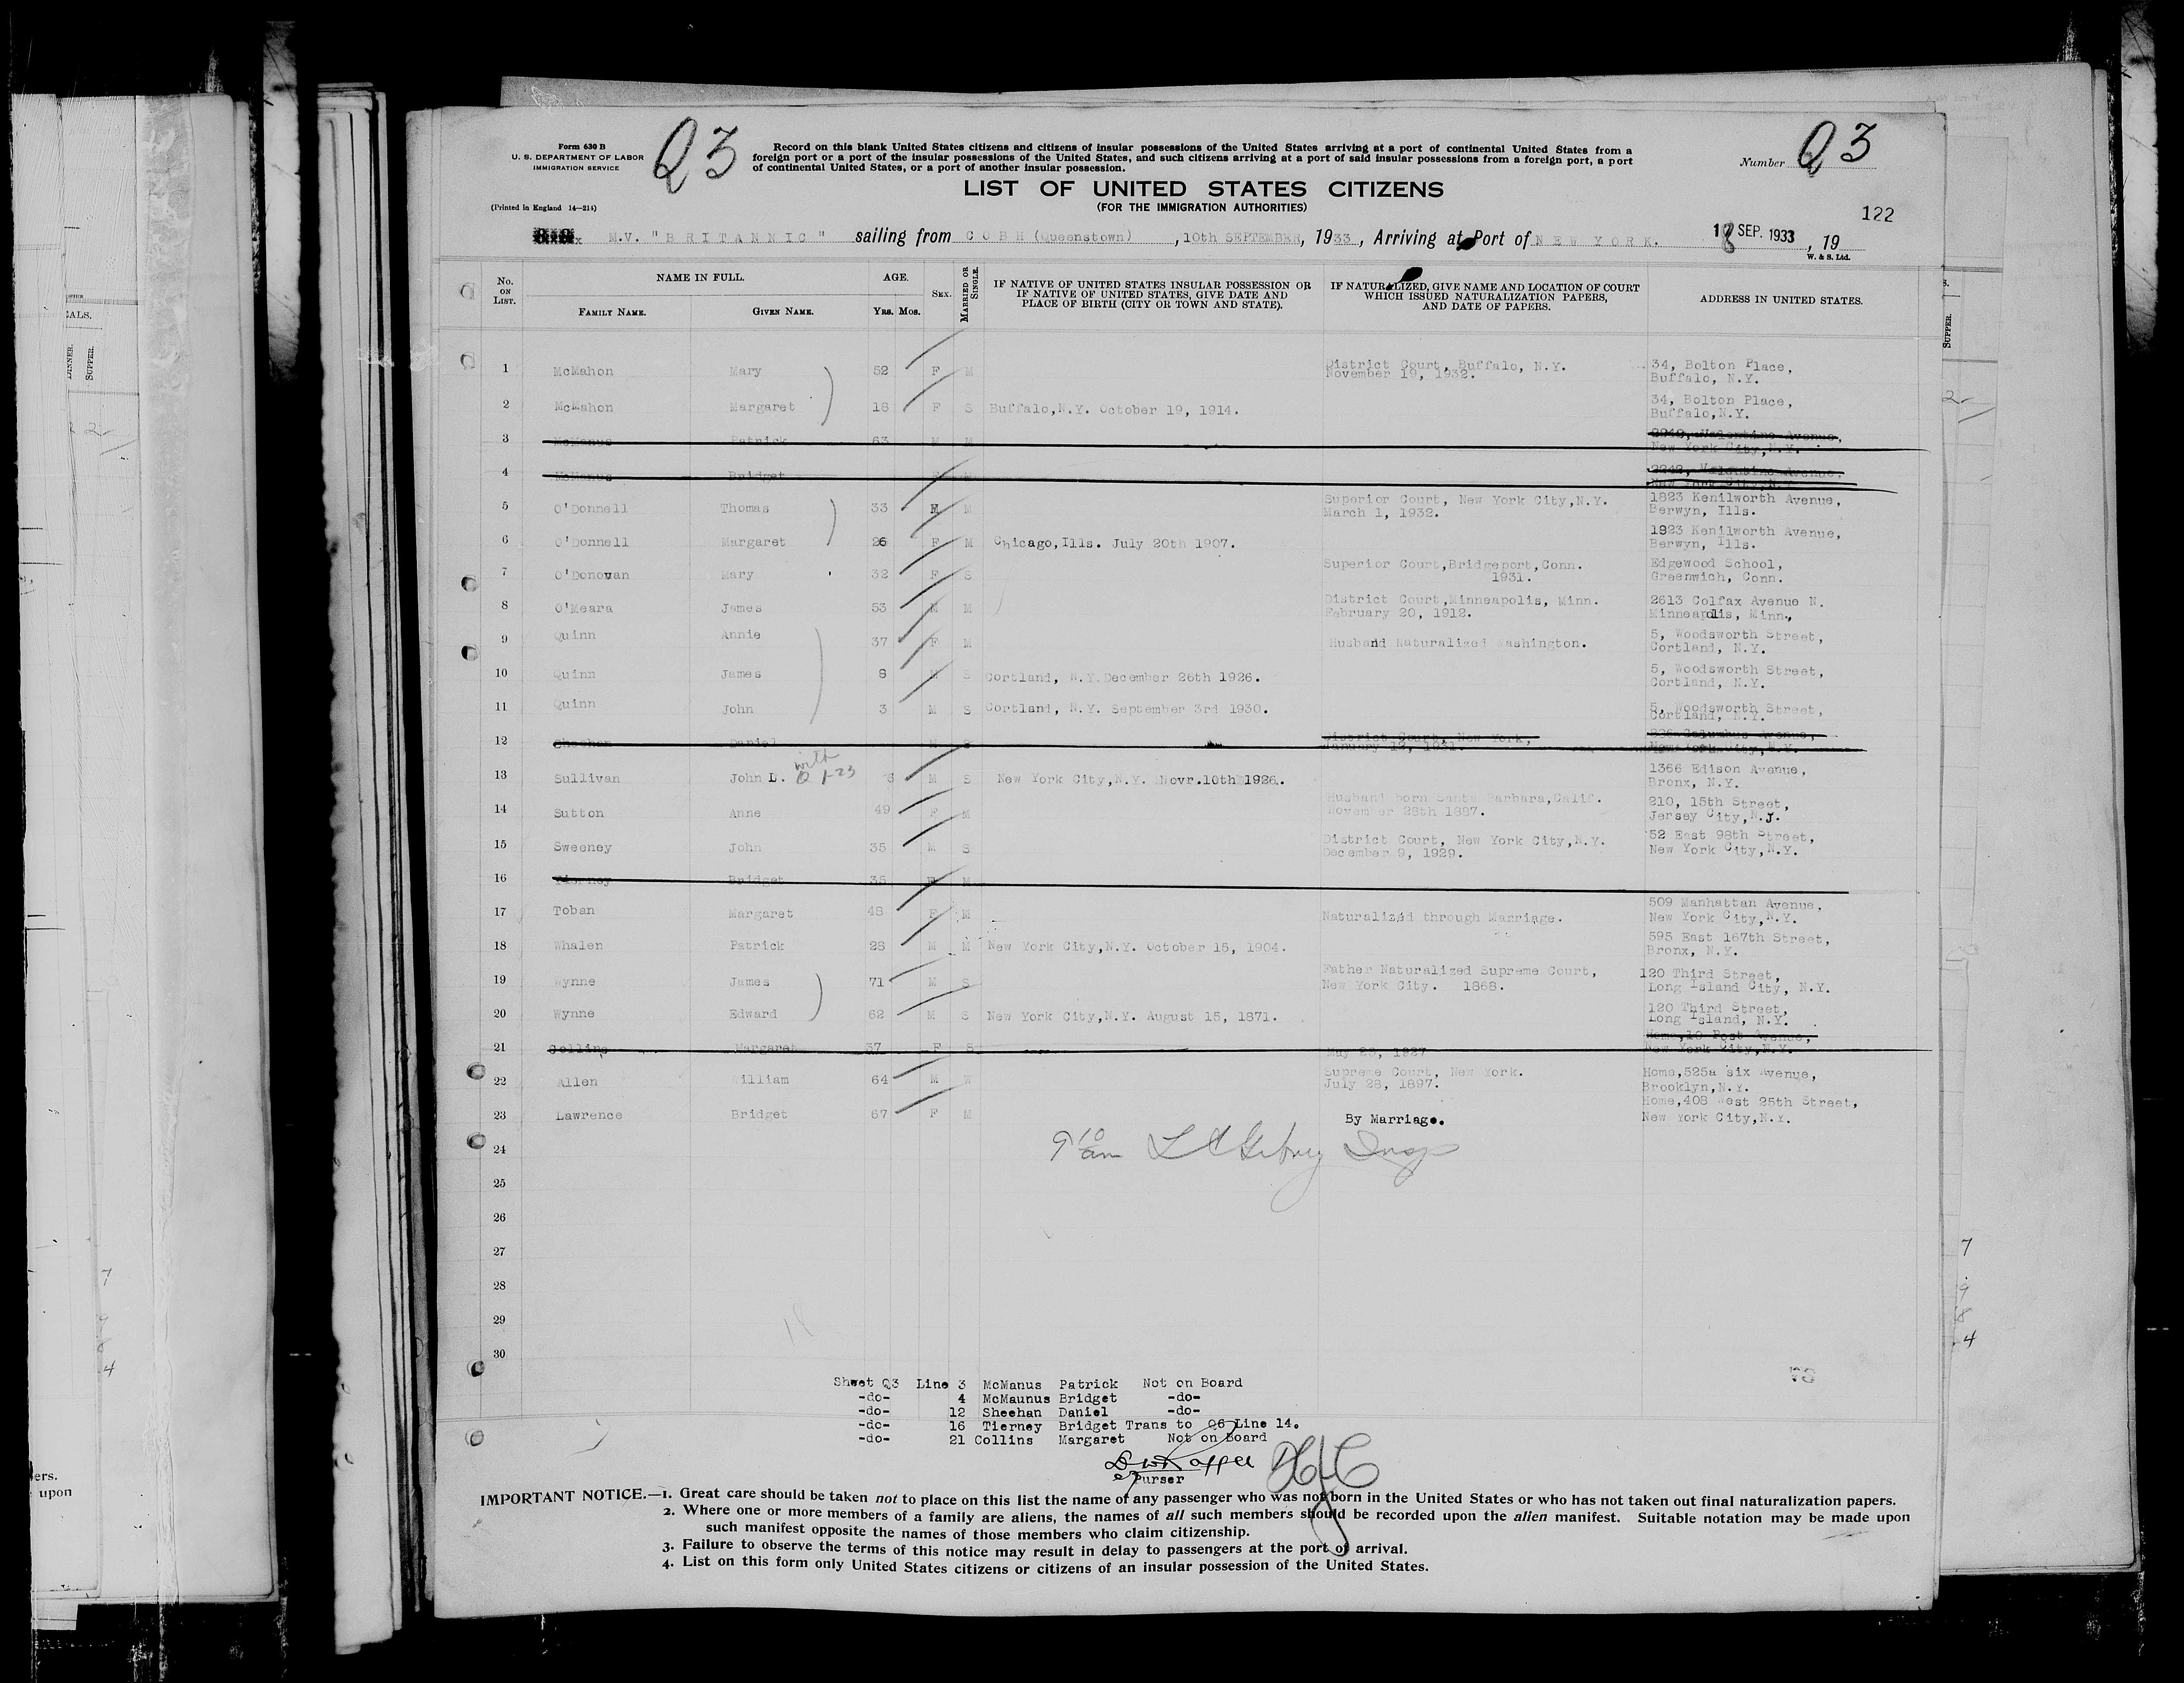 Form 630 B
U. S. DEPARTMENT OF LABOR
IMMIGRATION SERVICE
(Printed in England 14—214)
Q3
Record on this blank United States citizens and citizens of insular possessions of the United States arriving at a port of continental United States from a
foreign port or a port of the insular possessions of the United States, and such citizens arriving at a port of said insular possessions from a foreign port, a port
of continental United States, or a port of another insular possession.
Number Q3
LIST OF UNITED STATES CITIZENS
(FOR THE IMMIGRATION AUTHORITIES)
122
M.V. "BRITANNIC" sailing from COBH (Queenstown), 10th SEPTEMBER, 1933, Arriving at Port of NEW YORK. 18 SEP. 1933, 19
W. & S. Ltd.
No. ON LIST.
NAME IN FULL.
FAMILY NAME. GIVEN NAME.
AGE.
YRS. MOS.
SEX.
MARRIED OR SINGLE.
IF NATIVE OF UNITED STATES INSULAR POSSESSION OR
IF NATIVE OF UNITED STATES, GIVE DATE AND
PLACE OF BIRTH (CITY OR TOWN AND STATE).
IF NATURALIZED, GIVE NAME AND LOCATION OF COURT
WHICH ISSUED NATURALIZATION PAPERS,
AND DATE OF PAPERS.
ADDRESS IN UNITED STATES.
1 McMahon Mary 52 F M District Court, Buffalo, N.Y. 34, Bolton Place,
November 19, 1932. Buffalo, N.Y.
2 McMahon Margaret 18 F S Buffalo,N.Y. October 19, 1914. 34, Bolton Place,
Buffalo,N.Y.
3 McManus Patrick 63 M M Valentine Avenue,
New York City,N.Y.
4 McManus Bridget F M Valentine Avenue,
New York City,N.Y.
5 O'Donnell Thomas 33 M Superior Court, New York City,N.Y. 1823 Kenilworth Avenue,
March 1, 1932. Berwyn, Ills.
6 O'Donnell Margaret 26 F M Chicago,Ills. July 20th 1907. 1923 Kenilworth Avenue,
Berwyn, Ills.
7 O'Donovan Mary 32 F S Superior Court,Bridgeport,Conn. Edgewood School,
1931. Greenwich, Conn.
8 O'Meara James 53 M M District Court,Minneapolis, Minn. 2613 Colfax Avenue N.
February 20, 1912. Minneapolis, Minn.,
9 Quinn Annie 37 F M Husband Naturalized Washington. 5, Woodsworth Street,
Cortland, N.Y.
10 Quinn James 8 M S Cortland, N.Y.December 26th 1926. 5, Woodsworth Street,
Cortland, N.Y.
11 Quinn John 3 M S Cortland, N.Y. September 3rd 1930. 5, Woodsworth Street,
Cortland, N.Y.
12 Sheehan Daniel M S District Court, New York, Columbus Avenue,
January 12, 1931. New York City,N.Y.
with
13 Sullivan John D. Q 1-23 6 M S New York City,N.Y. Novr.10th 1926. 1366 Edison Avenue,
Bronx, N.Y.
14 Sutton Anne 49 F M Husband born Santa Barbara,Calif. 210, 15th Street,
November 28th 1887. Jersey City,N.J.
15 Sweeney John 35 M S District Court, New York City,N.Y. 52 East 98th Street,
December 9, 1929. New York City,N.Y.
16 Tierney Bridget 35 F M
17 Toban Margaret 48 F M Naturalized through Marriage. 509 Manhattan Avenue,
New York City,N.Y.
18 Whalen Patrick 28 M M New York City,N.Y. October 15, 1904. 595 East 167th Street,
Bronx, N.Y.
19 Wynne James 71 M S Father Naturalized Supreme Court, 120 Third Street,
New York City. 1868. Long Island City, N.Y.
20 Wynne Edward 62 M S New York City,N.Y. August 15, 1871. 120 Third Street,
Long Island, N.Y.
21 Collins Margaret 37 F S May 23, 1927 Home,10 Post Avenue,
New York City,N.Y.
22 Allen William 64 M W Supreme Court, New York. Home,525a six Avenue,
July 28, 1897. Brooklyn,N.Y.
23 Lawrence Bridget 67 F M By Marriage. Home,408 West 25th Street,
New York City,N.Y.
24 9 10 am Insp
25
26
27
28
29
30
Sheet Q3 Line 3 McManus Patrick Not on Board
-do- 4 McMaunus Bridget -do-
-do- 12 Sheehan Daniel -do-
-do- 16 Tierney Bridget Trans to Q6 Line 14.
-do- 21 Collins Margaret Not on Board
Purser
IMPORTANT NOTICE.—1. Great care should be taken not to place on this list the name of any passenger who was not born in the United States or who has not taken out final naturalization papers.
2. Where one or more members of a family are aliens, the names of all such members should be recorded upon the alien manifest. Suitable notation may be made upon
such manifest opposite the names of those members who claim citizenship.
3. Failure to observe the terms of this notice may result in delay to passengers at the port of arrival.
4. List on this form only United States citizens or citizens of an insular possession of the United States.
ALS.
DINNER.
SUPPER.
ers.
upon
7
4
SUPPER.
2
7
9
8
4